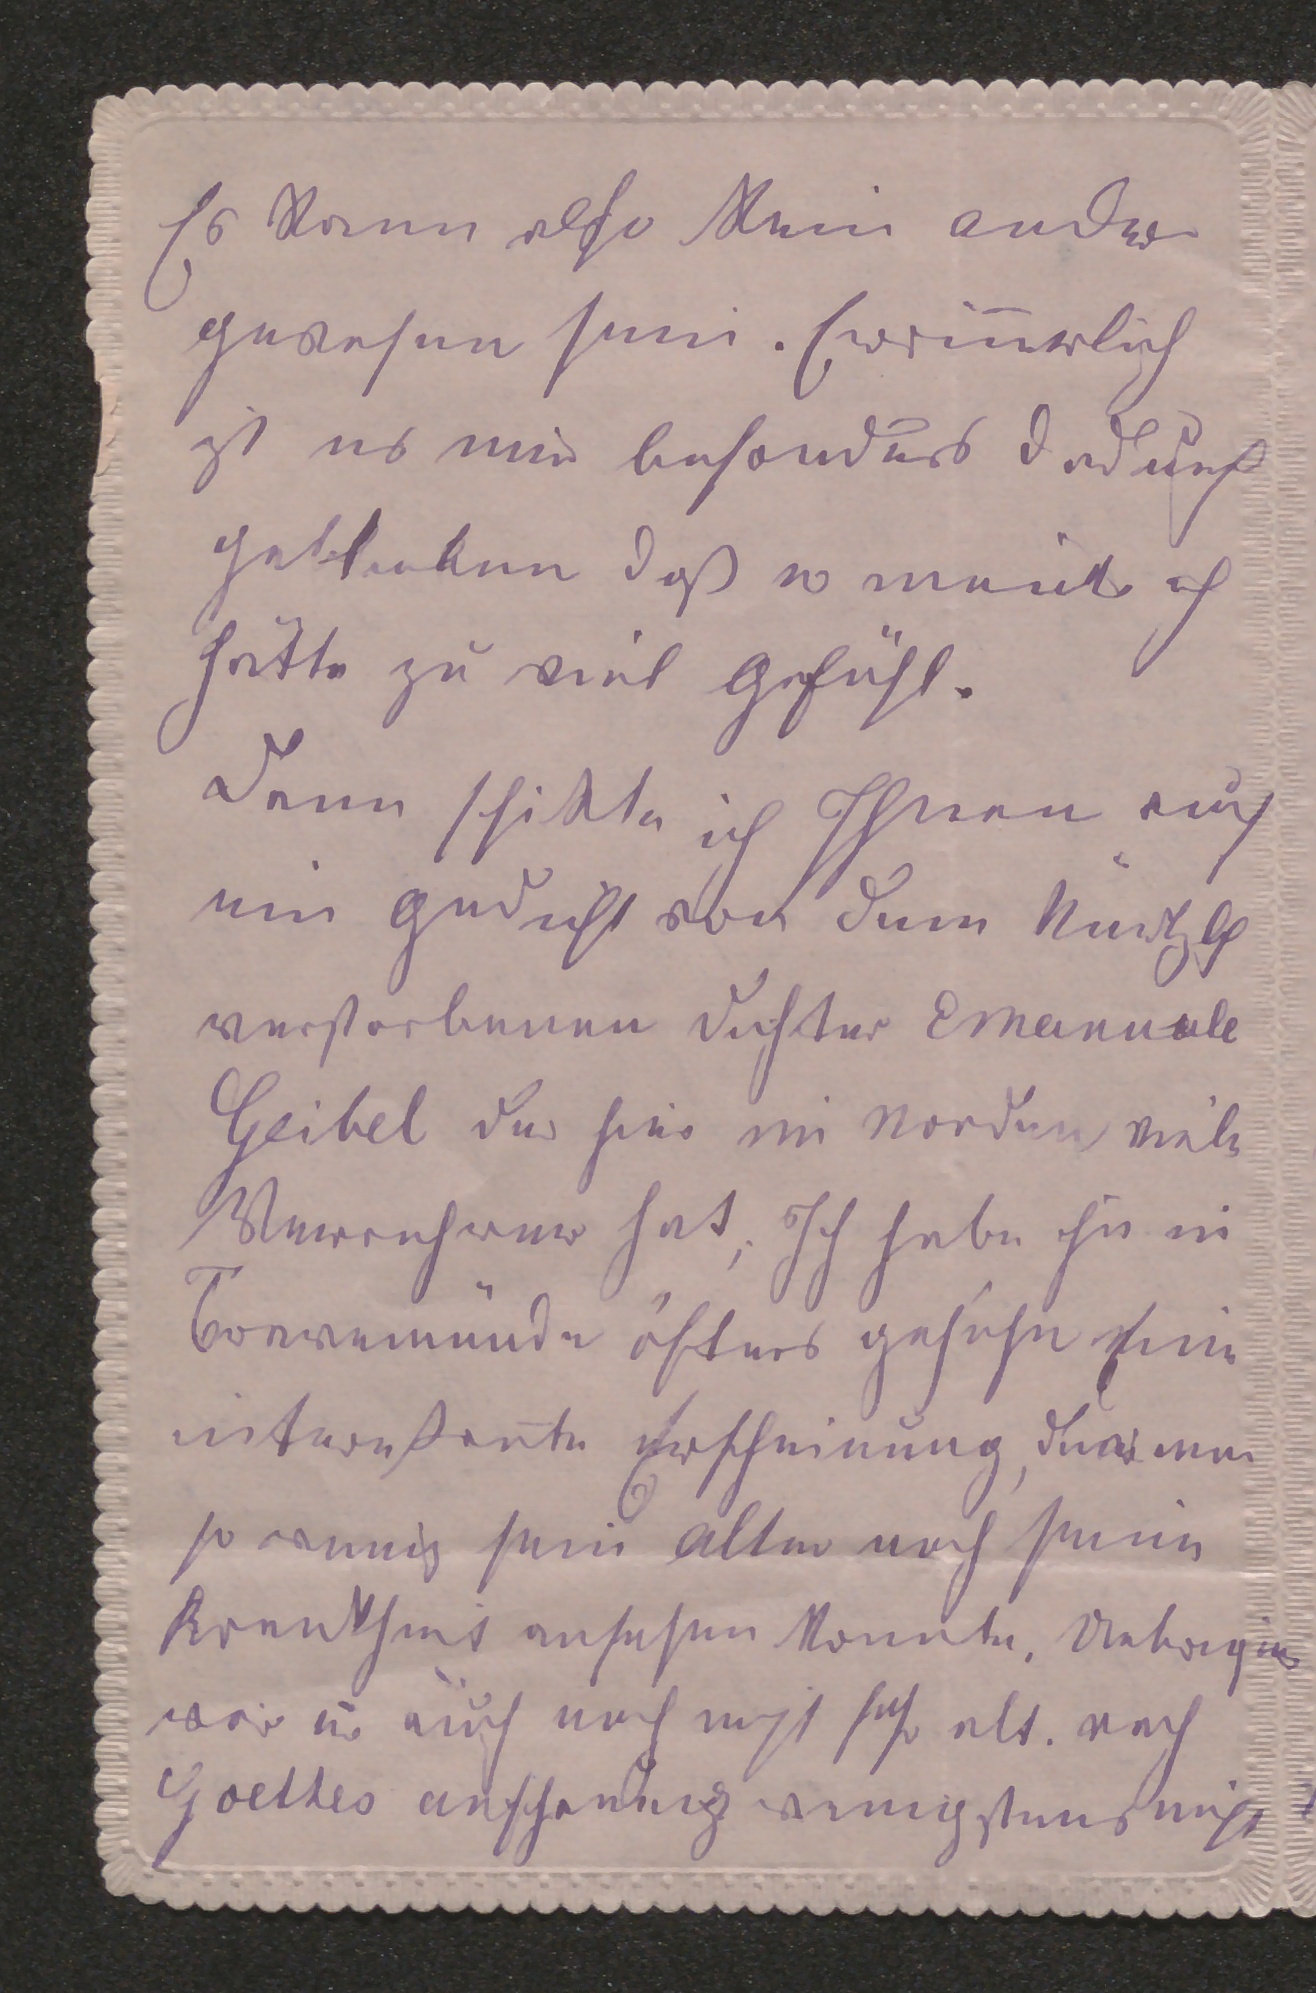 Es kann also kein ander
gewesen sein. Erinnerlich
ist es mir besonders dadurch
geblieben daß er meinte ich
hätte zu viel Gefühl.
Dann schikte ich Ihnen auch
ein Gedicht von dem kürtzlich
verstorbenen Dichter Emanuele
Geibel der hier im Norden viele
Verrehrer hat, Ich habe ihn in
Travemünde öfters gesehn Eine
interessante Erscheinung, dem man
so wenig sein Alter noch seine
Krankheit ansehen konnte. Uebrigens
war er auch noch nicht sehr alt. nach
Goethes anschauung wenigstens nicht